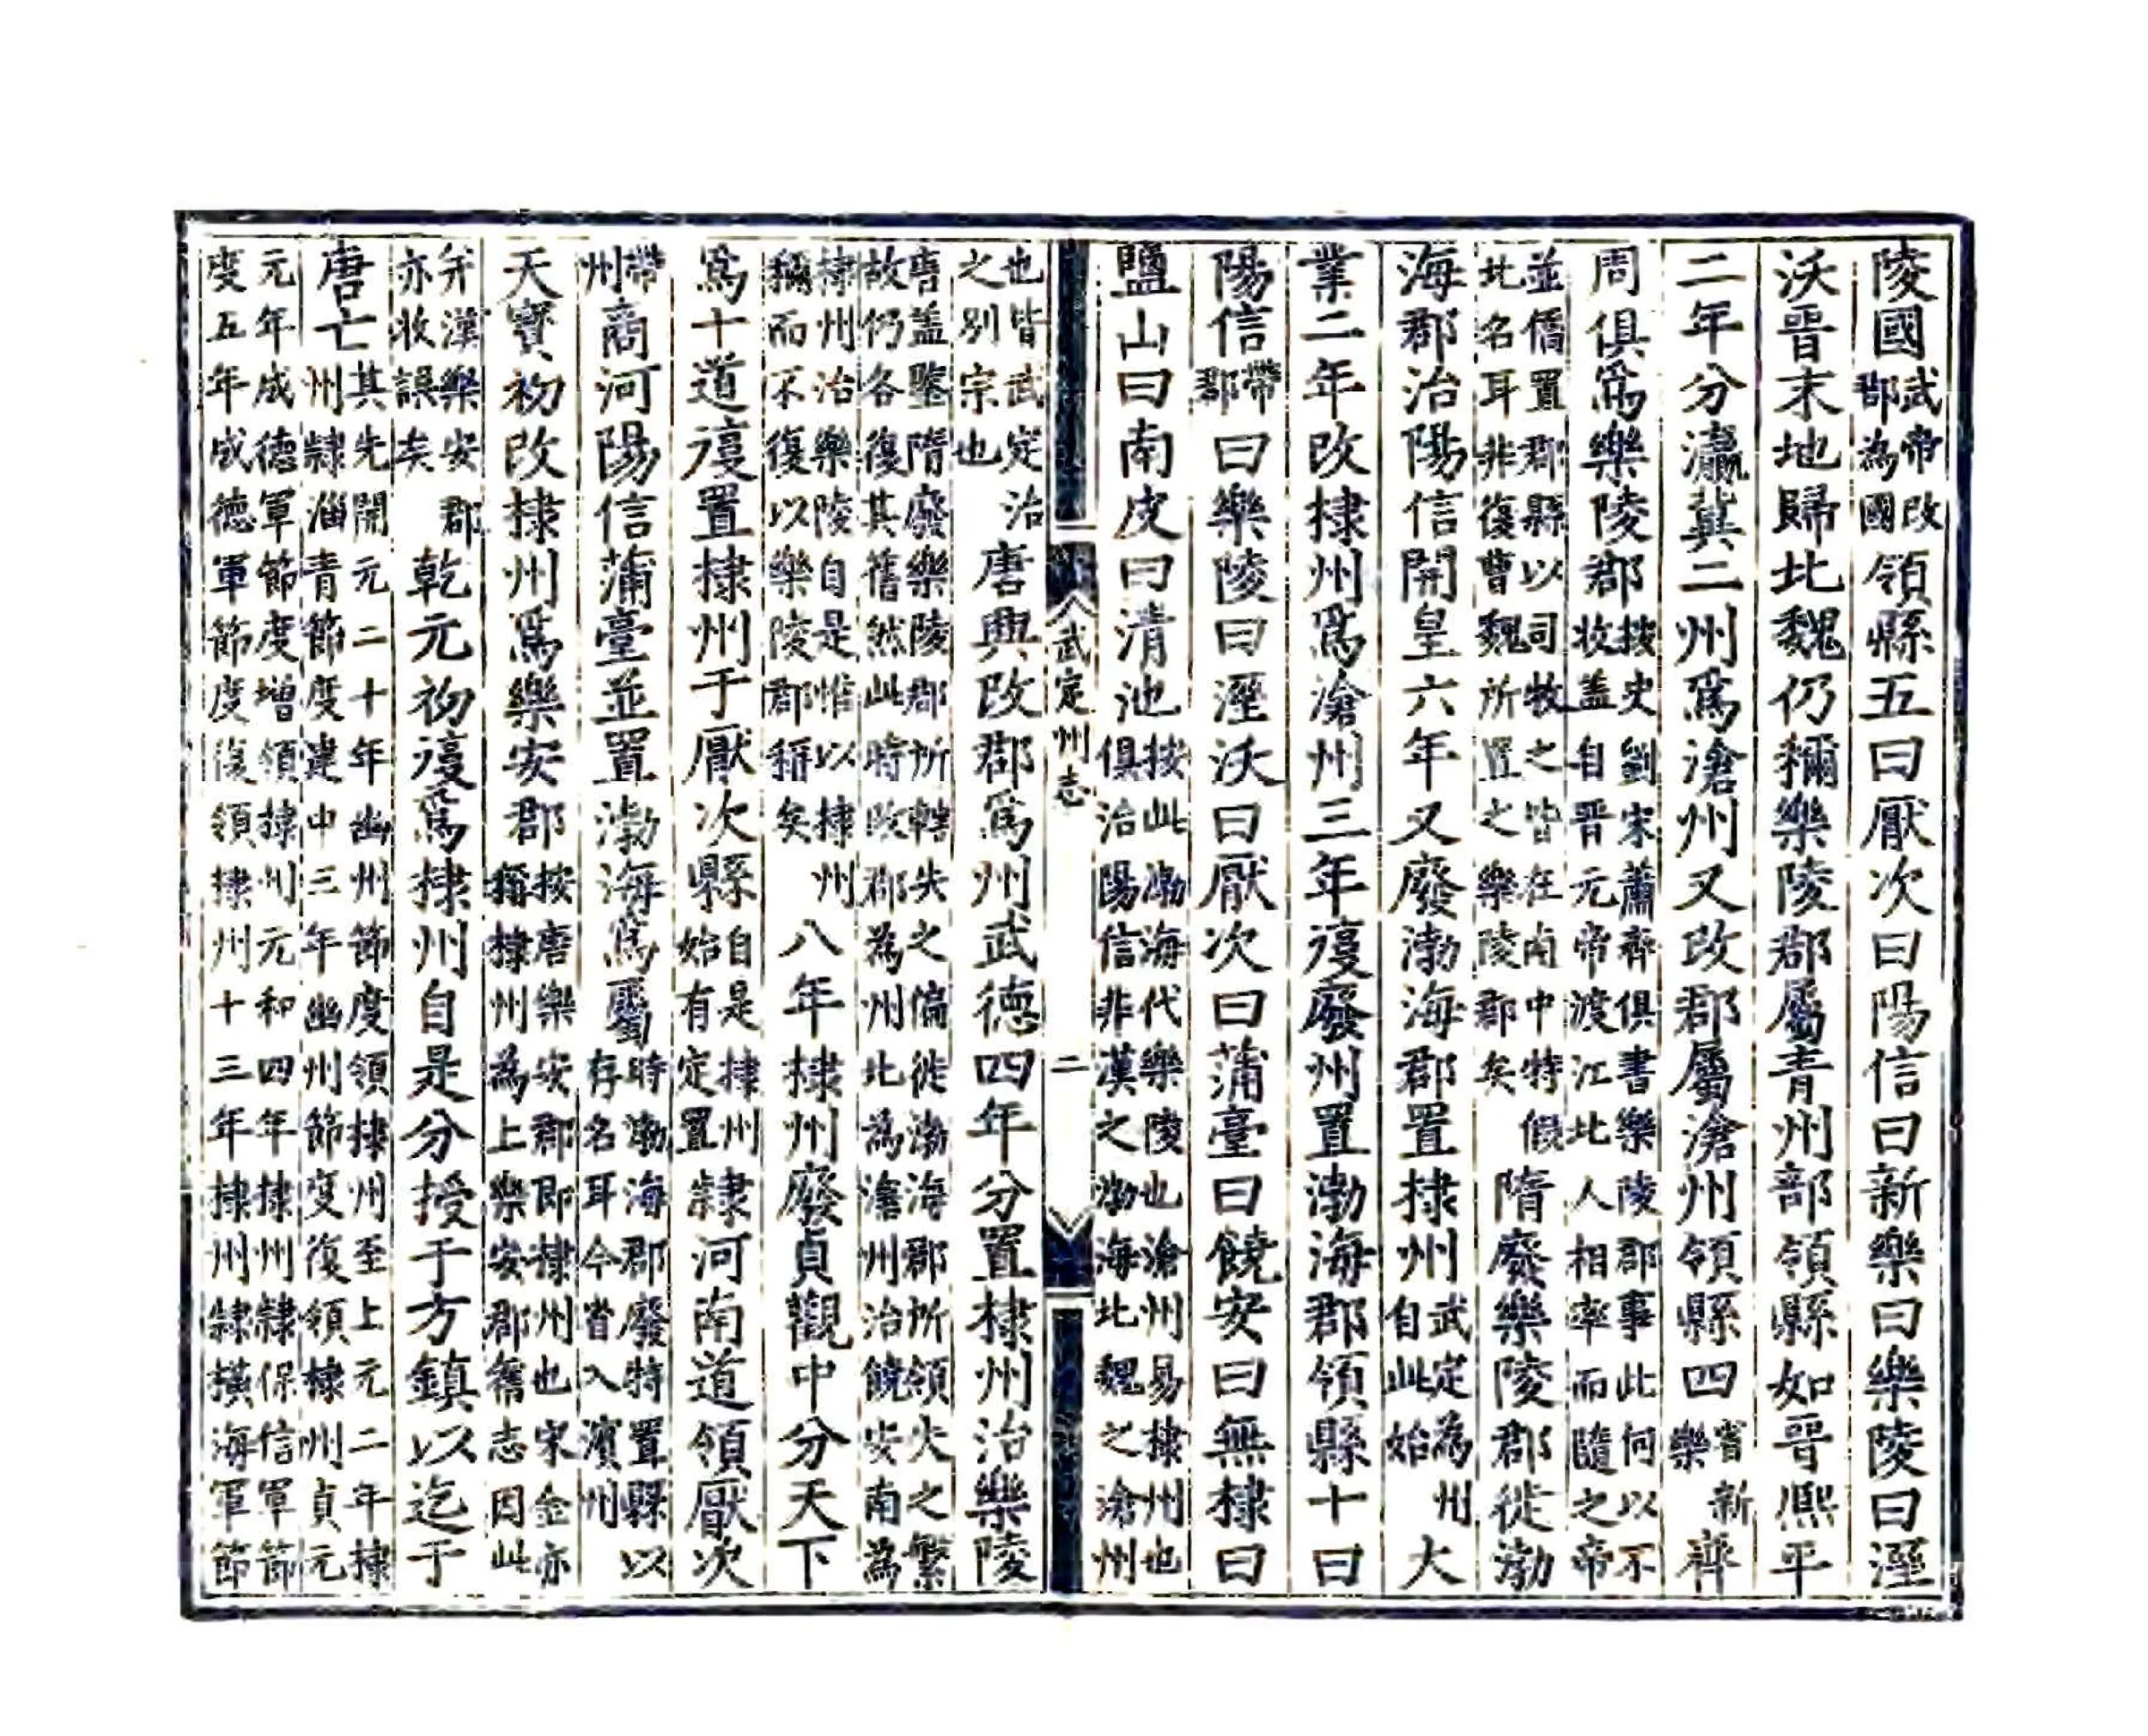 陵國武帝改郡為國領縣五曰厭次曰陽信曰新樂曰樂陵曰溼
沃晋末地歸北魏仍稱樂陵郡屬青州部領縣如晋熈平
二年分瀛冀二州爲滄州又改郡屬滄州領縣四省新樂齊
周俱爲樂陵郡按史劉宋蕭齊俱書樂陵郡事此何以不收盖自晋元帝渡江北人相率而隨之帝
並僑置郡縣以司牧之皆在南中特假此名耳非復曹魏所置之樂陵郡矣隋廢樂陵郡從渤
海郡治陽信開皇六年又廢渤海郡置棣州武定為州自此始大
業二年改棣州爲滄州三年復廢州置渤海郡領縣十曰
陽信帶郡曰樂陵曰溼沃曰厭次曰蒲臺曰饒安曰無棣曰
鹽山曰南皮曰清池按此渤海代樂陵也滄州易棣州也俱治陽信非漢之渤海北魏之滄州
武定州志 二
也皆武定治之別宗也唐興改郡爲州武德四年分置棣州治樂陵
唐盖鑒隋廢樂陵郡所轄失之偏從渤海郡所領失之繁故仍各復其舊然此時改郡為州北為滄州治饒安南為
棣州治樂陵自是惟以棣州稱而不復以樂陵郡稱矣八年棣州廢貞觀中分天下
爲十道復置棣州于厭次縣自是棣州始有定置隸河南道領厭次
帶州商河陽信蒲臺並置渤海爲屬時渤海郡廢特置縣以存名耳今省入濱州
天寶初改棣州爲樂安郡按唐樂安郡即棣州也宋金亦稱棣州為上樂安郡舊志因此
并漢樂安郡亦收誤矣乾元初復爲棣州自是分授于方鎮以迄于
唐亡其先開元二十年幽州節度領棣州至上元二年棣州隸淄青節度建中三年幽州節度復領棣州貞元
元年成德軍節度增領棣州元和四年棣州隸保信軍節度五年成德軍節度復領棣州十三年棣州隸橫海軍節